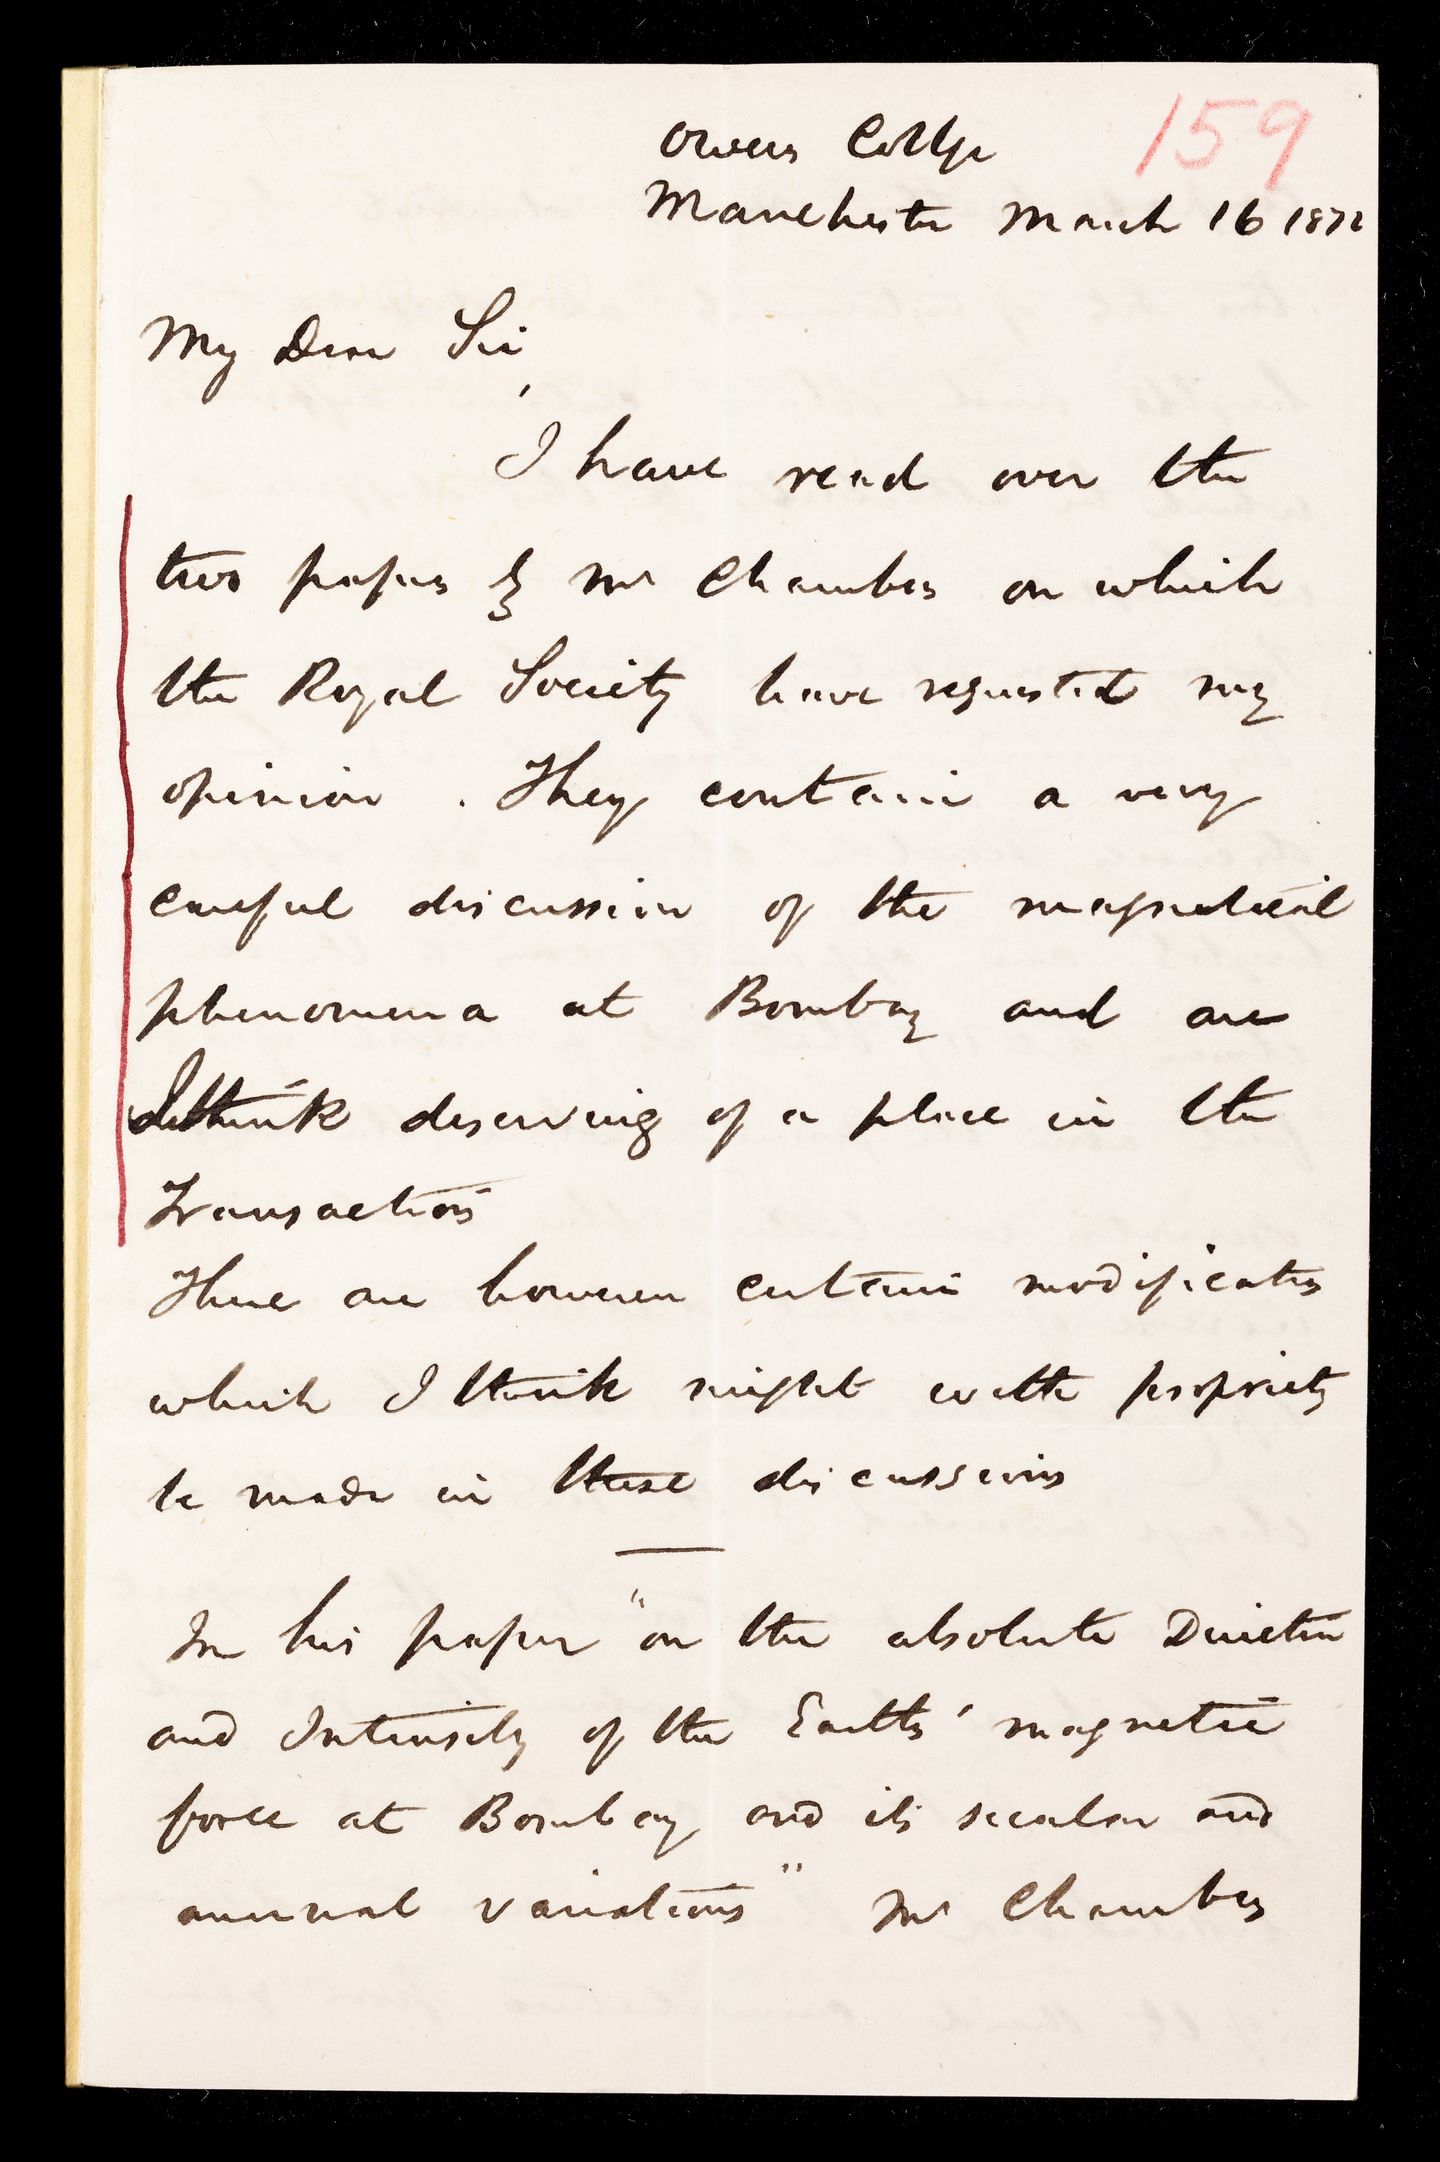 159
Owens College
Manchester March 16 1872
My Dear Sir,
I have read over the
two papers by Mr Chambers on which
the Royal Society have requested my
opinion. They contain a very
careful discussion of the magnetical
phenomena at Bombay and are
I think deserving of a place in the
Transactions
There are however certain modifications
which I think might with propriety
be made in these discussions
In his paper "on the absolute Direction
and Intensity of the Earths' magnetic
force at Bombay and its secular and
annual variations" Mr Chambers